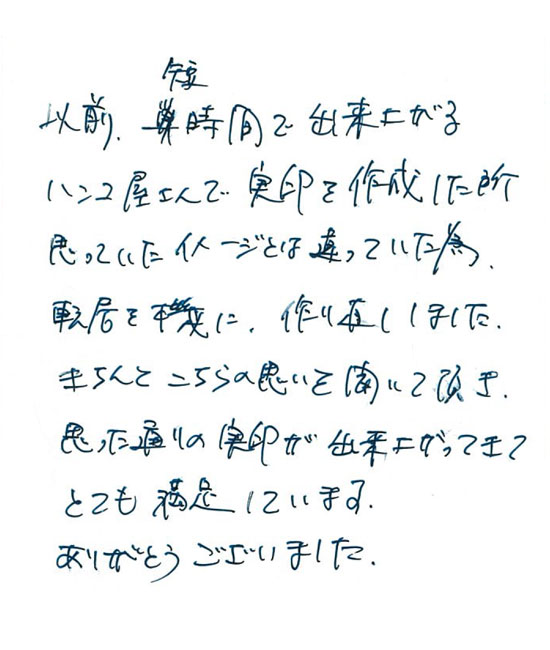 以前、短時間で出来上がる
ハンコ屋さんで実印を作成した所
思っていたイメージとは違っていた為、
転居を機に、作り直ししました。
きちんとこちらの思いを聞いて頂き、
思った通りの実印が出来上がってきて
とても満足しています。
ありがとうございました。